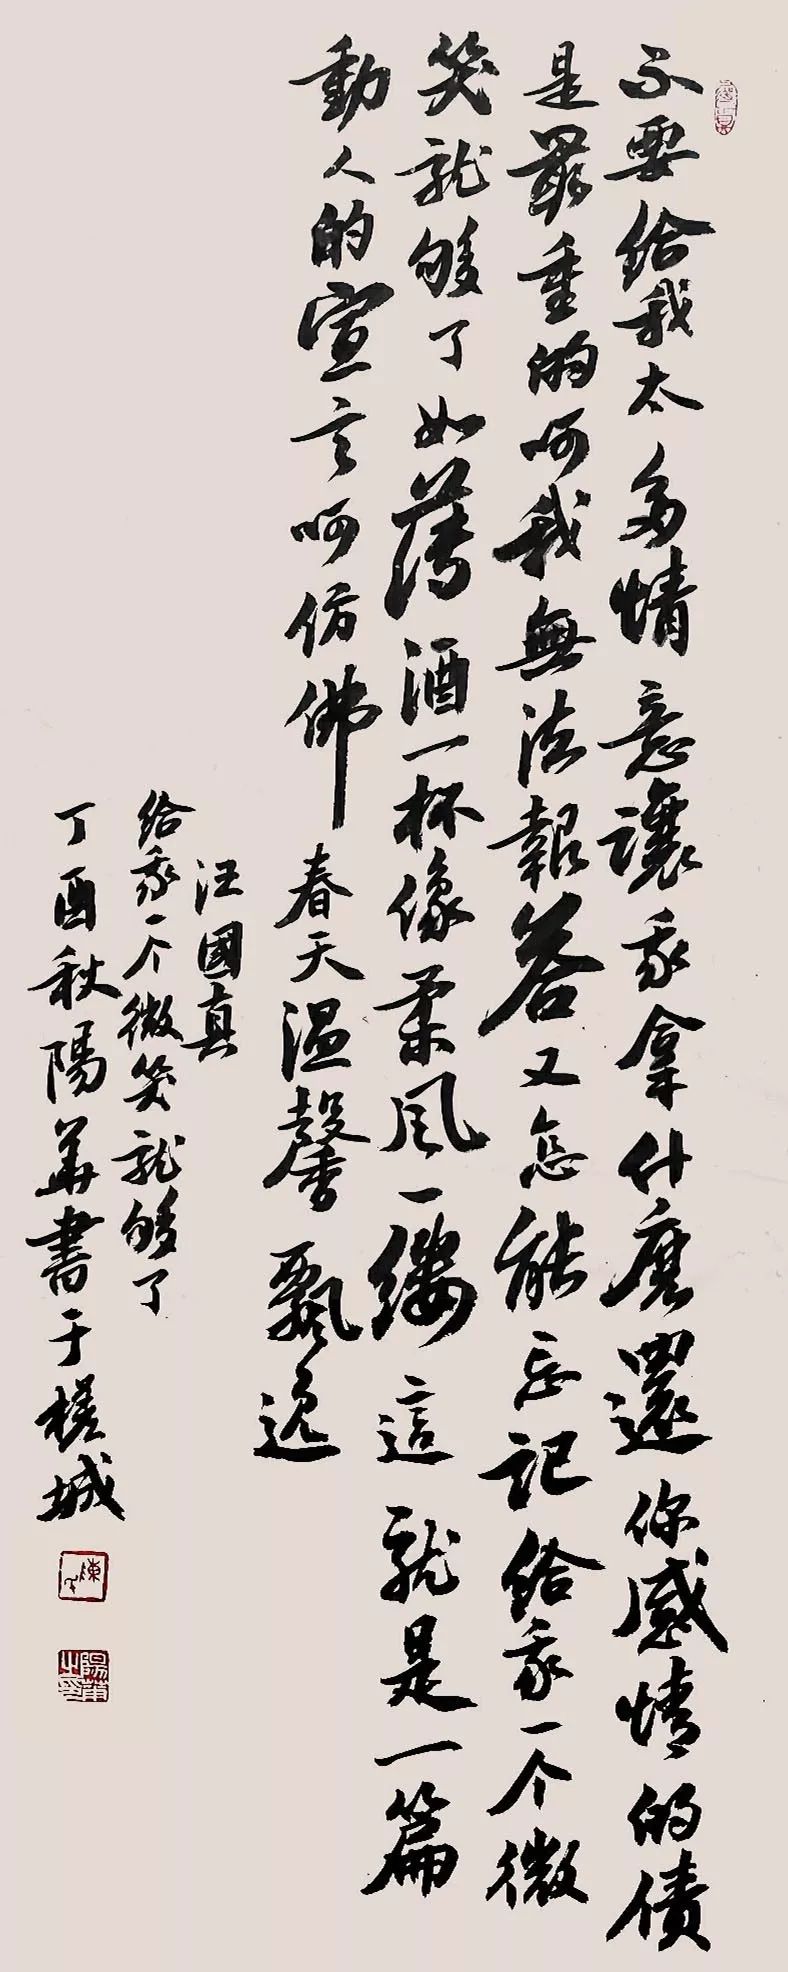 不要给我太多情意讓我拿什麼還你感情的债
是最重的呵我無法報答又怎能忘记给我一个微
笑就够了如薄酒一杯像柔风一缕這就是一篇
動人的宣言呵仿佛春天温馨飘逸
汪國真
给我一个微笑就够了
丁酉秋陽华書于槎城